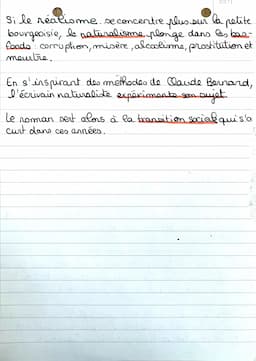 Si le réalisme se concentre plus sur la petite
bourgeoisie, le naturalisme plonge dans les bas-
fonds : corruption, misère, alcoolisme, prostitution et
meurtre.
En s'inspirant des méthodes de Claude Bernard,
l'écrivain naturaliste expérimente son sujet.
Le roman sert alors à la transition sociale qui s'o
dans ces années.